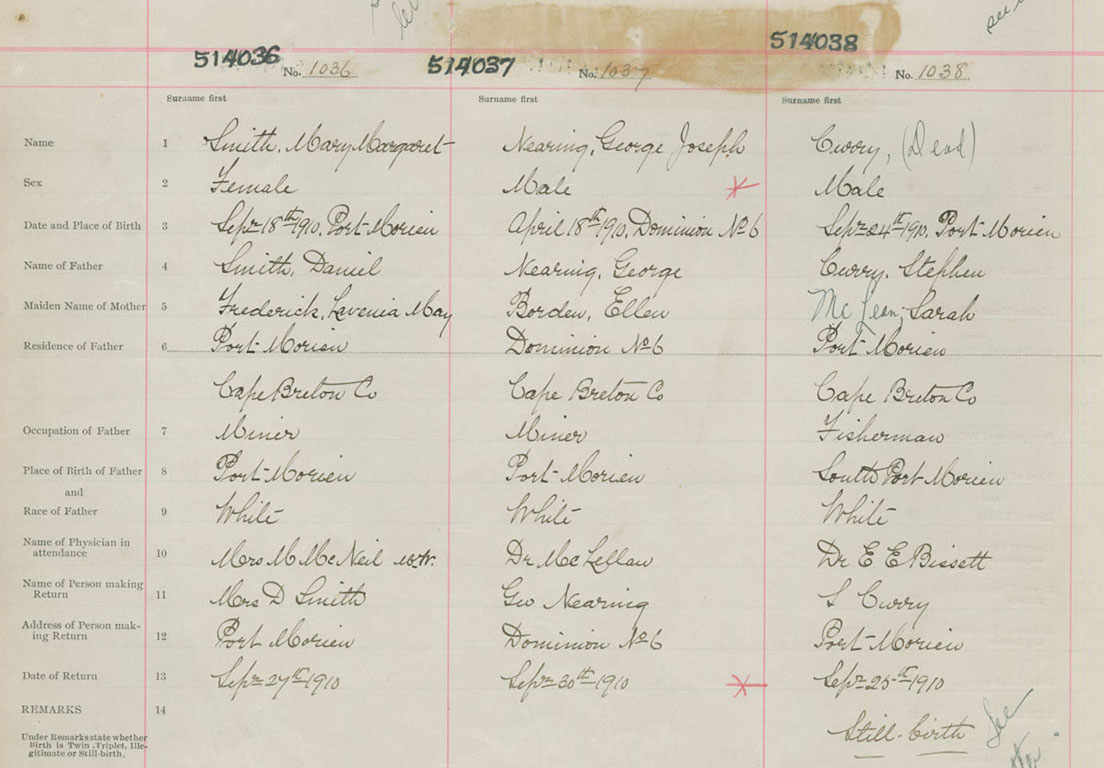 514036 No. 1036 514037 No. 1037 514038 No. 1038
Surname first Surname first Surname first
Name 1 Smith, Mary Margaret Nearing, George Joseph Curry, (Dead)
Sex 2 Female Male Male
Date and Place of Birth 3 Sept 18th 1910, Port Morien April 18th 1910, Dominion No 6 Sept 24th 1910, Port Morien
Name of Father 4 Smith, Daniel Nearing, George Curry, Stephen
Maiden Name of Mother 5 Frederick, Lavenia May Borden, Ellen McLean, Sarah
Residence of Father 6 Port Morien Dominion No 6 Port Morien
Cape Breton Co Cape Breton Co Cape Breton Co
Occupation of Father 7 Miner Miner Fisherman
Place of Birth of Father 8 Port Morien Port Morien South Port Morien
and
Race of Father 9 White White White
Name of Physician in
attendance 10 Mrs M McNeil Dr McLellan Dr E E Bissett
Name of Person making
Return 11 Mrs D Smith Geo Nearing S Curry
Address of Person mak-
ing Return 12 Port Morien Dominion No 6 Port Morien
Date of Return 13 Sept 27th 1910 Sept 30th 1910 Sept 25th 1910
REMARKS 14 Still-birth See
Under Remarks state whether
Birth is Twin, Triplet, Ille-
gitimate or Still-birth.